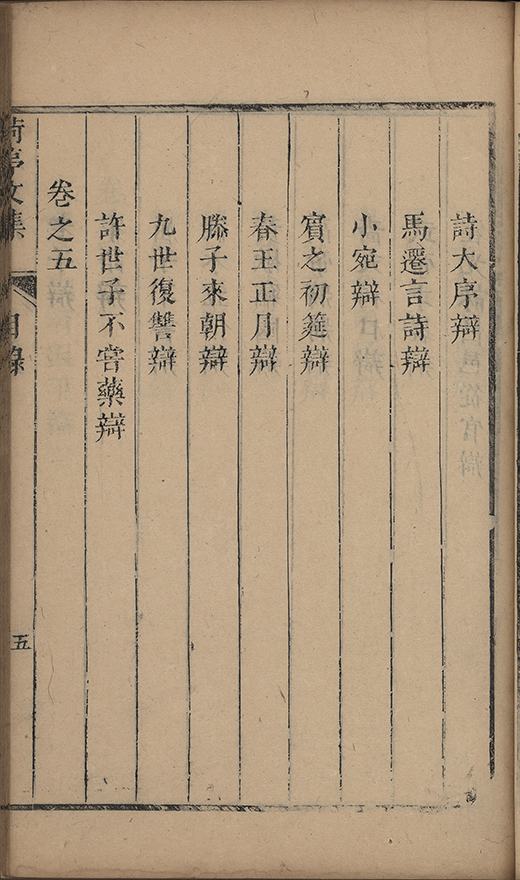 詩大序辯
馬遷言詩辯
小宛辯
賓之初筵辯
春王正月辯
滕子來朝辯
九世復讐辯
許世子不嘗藥辯
卷之五
亭文集
目錄
五